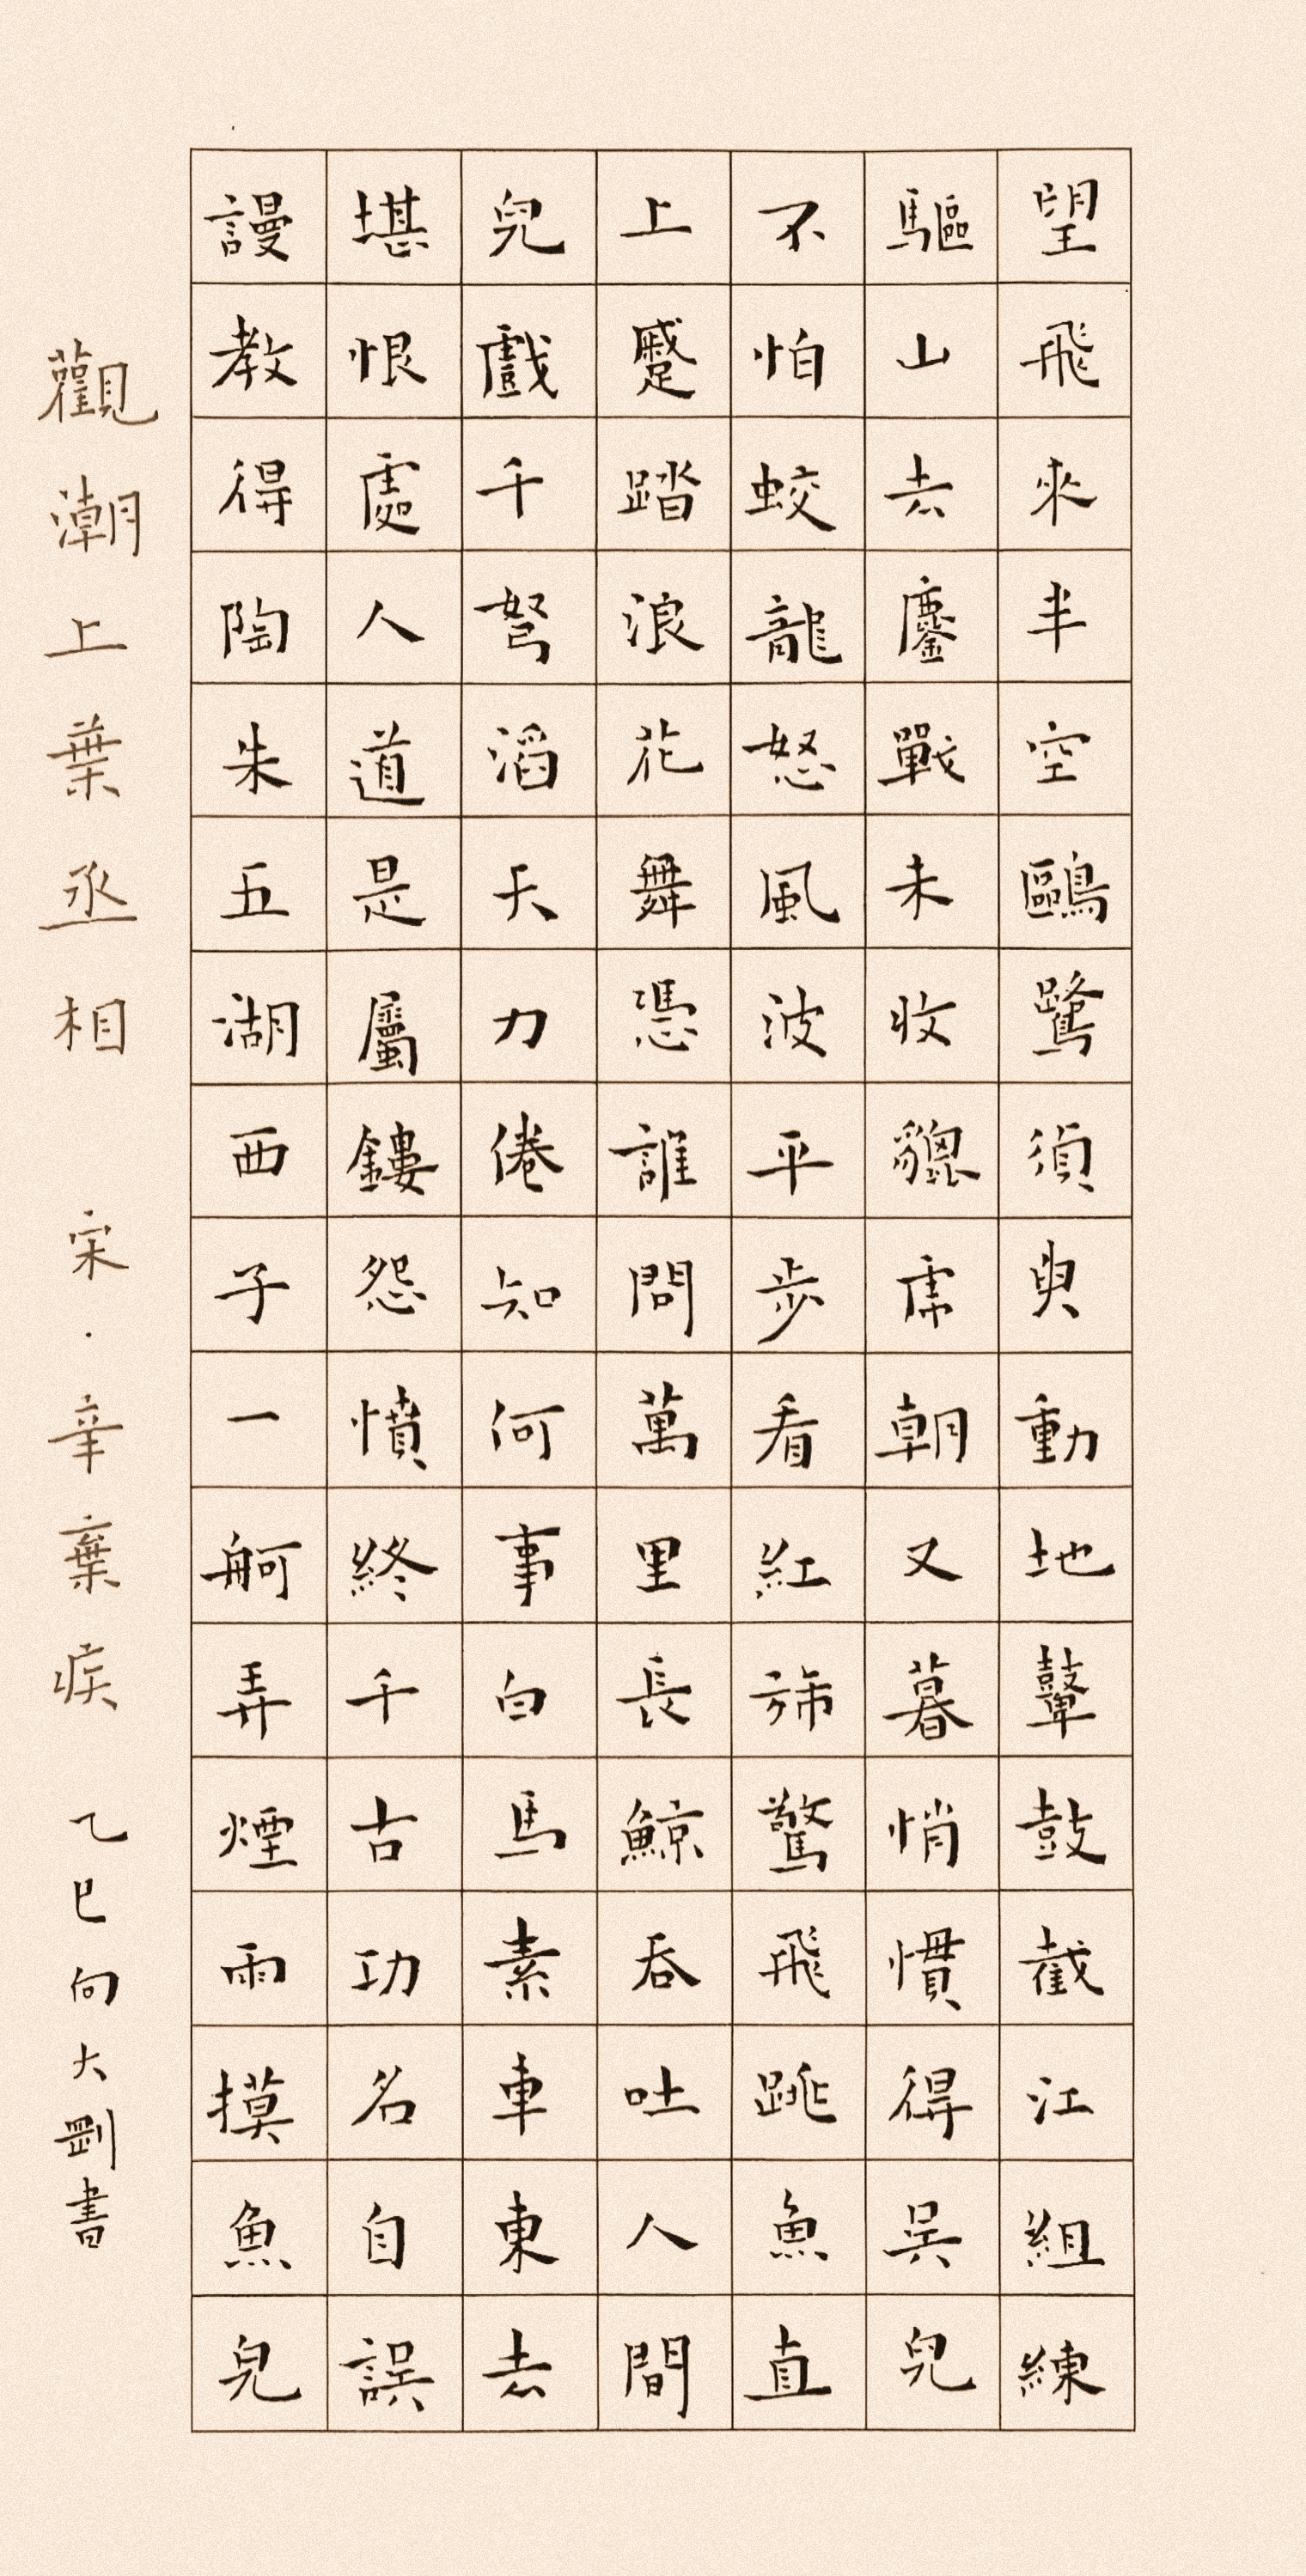 望飛來半空鷗鷺須臾動地鼙鼓截江組練
驅山去鏖戰未收貔虎朝又暮悄慣得吳兒
不怕蛟龍怒風波平步看紅旆驚飛跳魚直
上蹙踏浪花舞憑誰問萬里長鯨吞吐人間
兒戲千弩滔天力倦知何事白馬素車東去
堪恨處人道是屬鏤怨憤終千古功名自誤
謾教得陶朱五湖西子一舸弄煙雨摸魚兒
觀潮上葉丞相 宋·辛棄疾 乙巳向大剛書